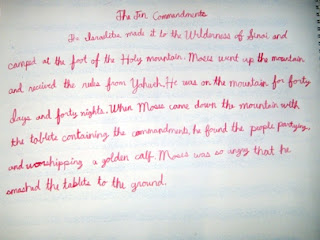 The Ten Commandments
The Israelites made it to the Wilderness of Sinai and
camped at the foot of the Holy mountain. Moses went up the mountain
and received the rules from Yahweh. He was on the mountain for forty
days and forty nights. When Moses came down the mountain with
the tablets containing the commandments, he found the people partying,
and worshipping a golden calf. Moses was so angry that he
smashed the tablets to the ground.